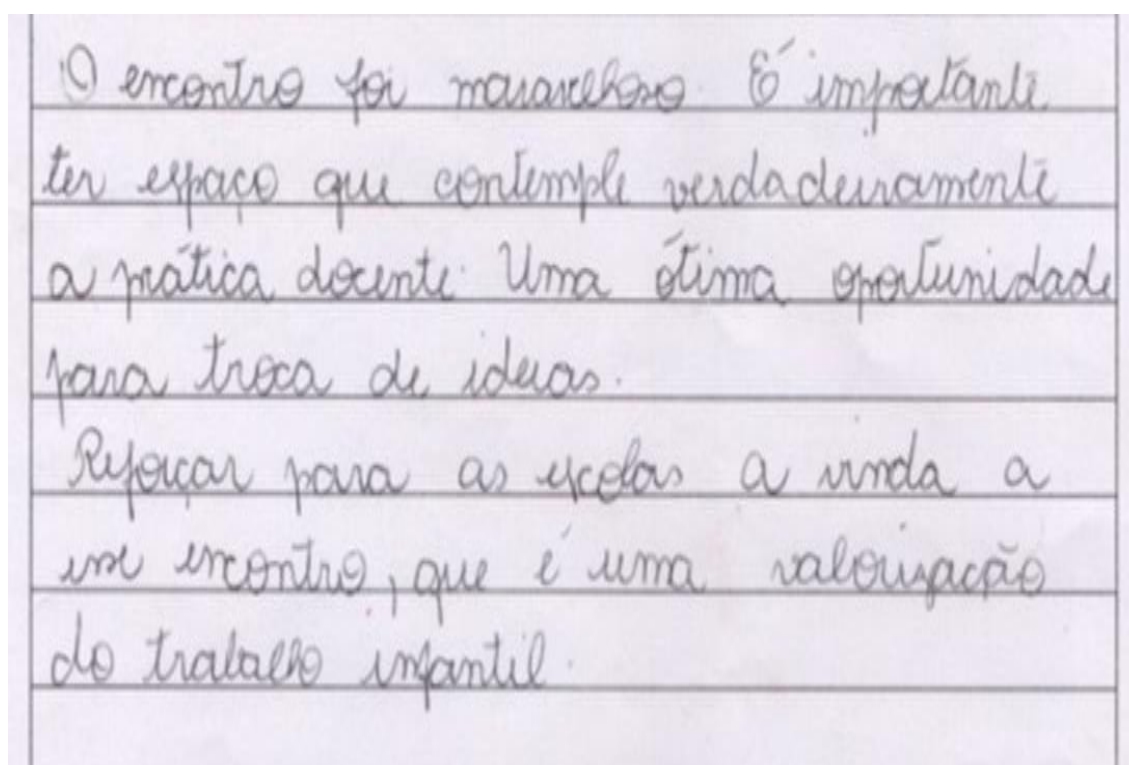 O encontro foi maravilhoso. É importante
ter espaço que contemple verdadeiramente
a prática docente. Uma ótima oportunidade
para troca de ideias.
Reforçar para as escolas a vinda a
esse encontro, que é uma valorização
do trabalho infantil.